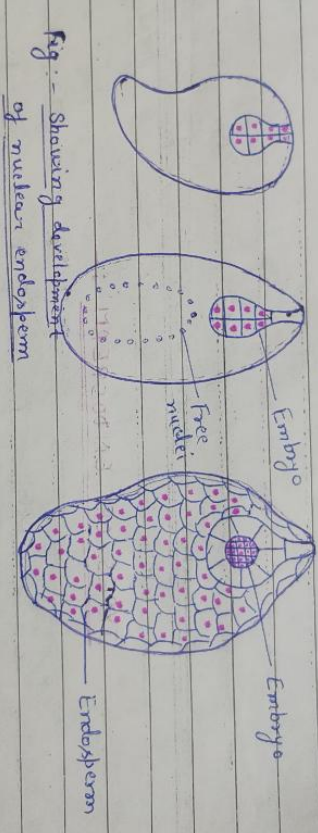 Embryo
Free
nuclei
Embryo
Endosperm
Fig:- Showing development
of nuclear endosperm